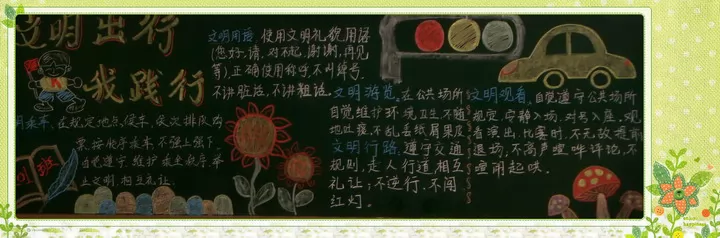 文明出行
我践行
文明用语，使用文明礼貌用语
(您好、请、对不起、谢谢、再见
等)，正确使用称呼，不叫绰号，
不讲脏话，不讲粗话。
明乘车，在规定地点候车，依次排队
乘车，不强上强下，
自觉遵守
主文明，相互礼让。
文明游览，在公共场所
自觉维护环境卫生不随
地吐痰，不乱丢纸屑果皮
文明行路，遵守交通
规则，走人行道相互
礼让；不逆行，不闯
红灯。
文明观看，自觉遵守公共场所
规定，安静入场，对号入座，观
看演出、比赛时，不无故提前
退场，不高声喧哗评论，不
喧闹起哄。